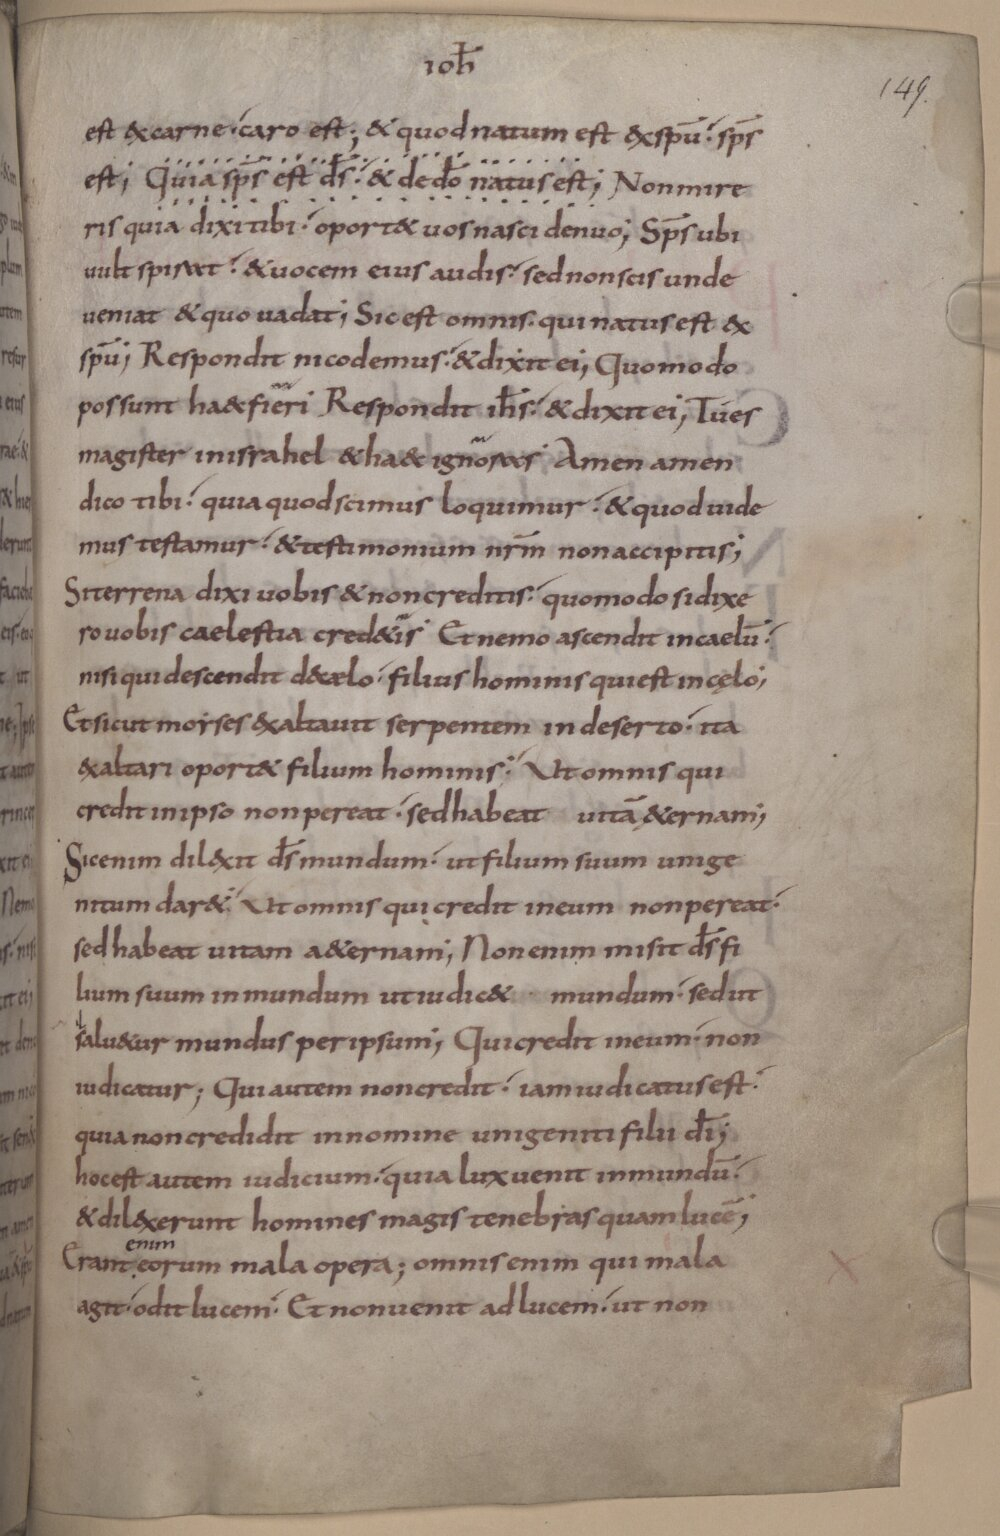 ioh̄
149.
est & carne · caro est ; & quod natum est & spū · sp̄s
est ; Quia sp̄s est d̄s · & de dō natus est ; Non mire
ris quia dixi tibi · oport& uos nasci denuo ; Sp̄s ubi
uult spirat · & uocem eius audis · sed non scis unde
ueniat & quo uadat ; Sic est omnis · qui natus est ex
spū ; Respondit nicodemus · & dixit ei ; Quomodo
possunt haec fieri Respondit ih̄s · & dixit ei ; Tu es
magister in israhel & haec ignoras Amen amen
dico tibi · quia quod scimus loquimur · & quod uide
mus testamur · & testimonium nr̄m non accipitis ;
Si terrena dixi uobis & non creditis · quomodo si dixe
ro uobis caelestia cred&is Et nemo ascendit in caelū ·
nisi qui descendit de caelo · filius hominis qui est in cęlo ;
Et sicut moyses exaltauit serpentem in deserto · ita
exaltari oport& filium hominis · Ut omnis qui
credit in ipso non pereat · sed habeat uitā &ernam ;
Sic enim dilexit d̄s mundum · ut filium suum unige
nitum dar& · Ut omnis qui credit in eum non pereat ·
sed habeat uitam a&ernam ; Non enim misit d̄s fi
lium suum in mundum ut iudic& mundum · sed ut
salu&ur mundus per ipsum ; Qui credit in eum · non
iudicatur ; Qui autem non credit · iam iudicatus est ·
quia non credidit in nomine unigeniti filii dī ;
hoc est autem iudicium · quia lux uenit in mundū ·
& dilexerunt homines magis tenebras quam lucē ;
enim
Erant eorum mala opera ; omnis enim qui mala
agit · odit lucem · Et non uenit ad lucem · ut non